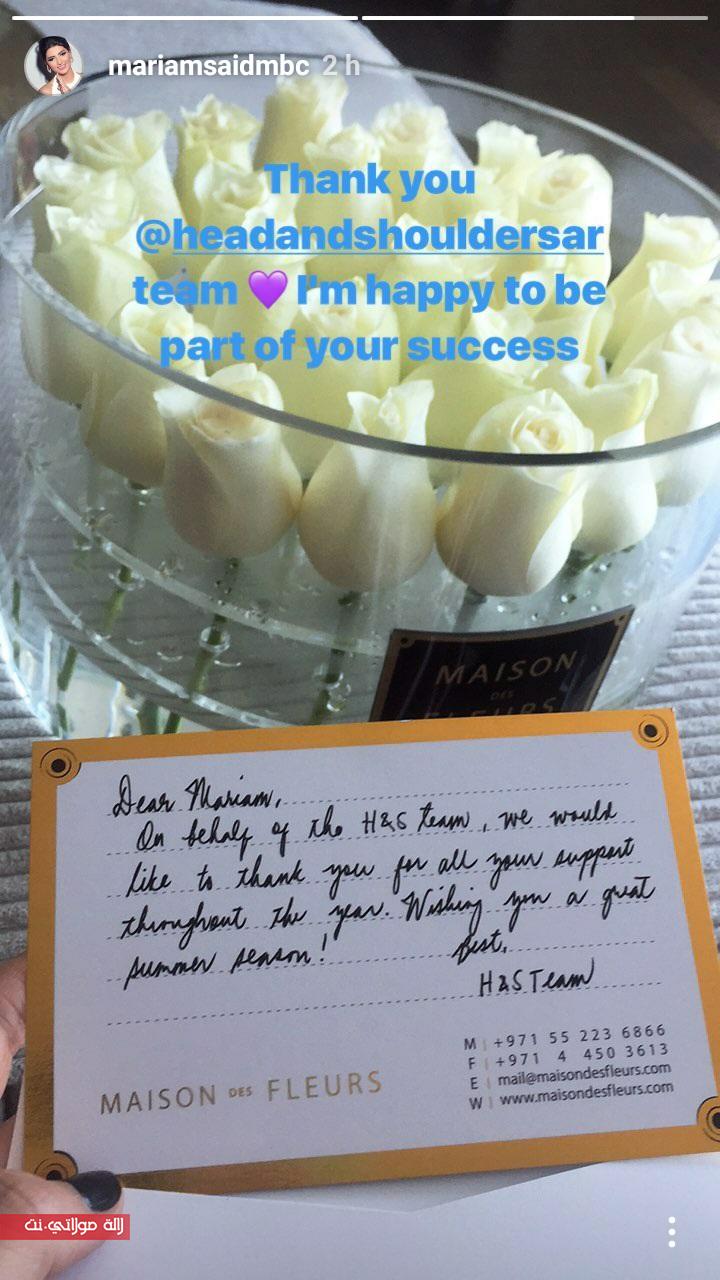 mariamsaidmbc 2 h
Thank you
@headandshouldersar
team 💜 I'm happy to be
part of your success
MAISON
DES
FLEURS
Dear Mariam,
On behalf of the H&S team, we would
like to thank you for all your support
throughout the year. Wishing you a great
summer season!
Best,
H&S Team
MAISON DES FLEURS
M | +971 55 223 6866
F | +971 4 450 3613
E | mail@maisondesfleurs.com
W | www.maisondesfleurs.com
لالة مولاتي.نت